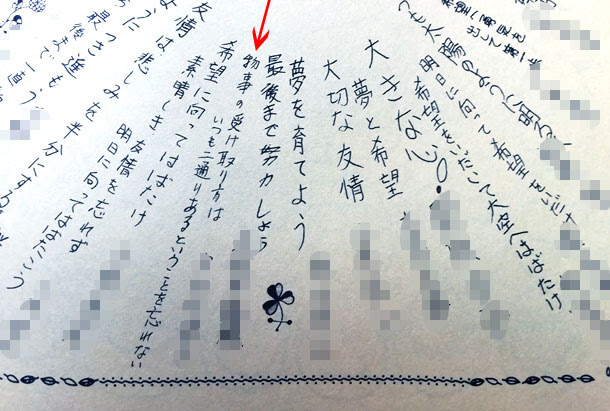 希望
つも太陽のように明るく
明日に向って希望をいだき
希望をいだいて大空へはばたけ
大きな心
夢と希望
大切な友情
夢を育てよう
最後まで努力しよう
物事の受け取り方は
いつも二通りあるということを忘れない
希望に向って
素晴しきはばたけ
友情は悲しみを半分にする
友情を忘れず
明日に向ってはばたこう
最後まで一直
つき進もう